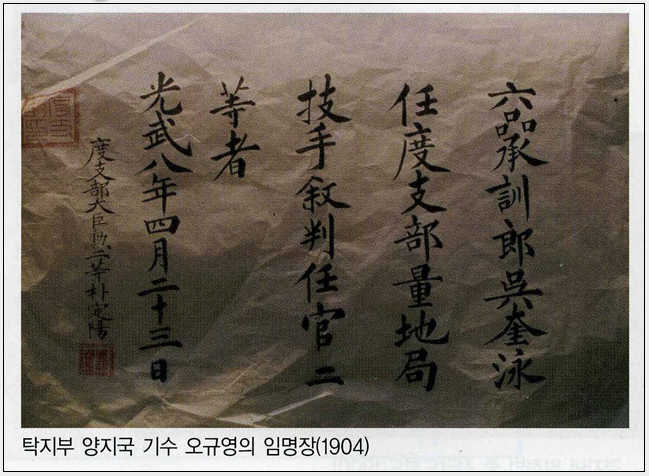 六品承訓郎吳奎泳
任度支部量地局
技手敘判任官二
等者
光武八年四月二十三日
度支部大臣勳一等朴定陽
탁지부 양지국 기수 오규영의 임명장(1904)